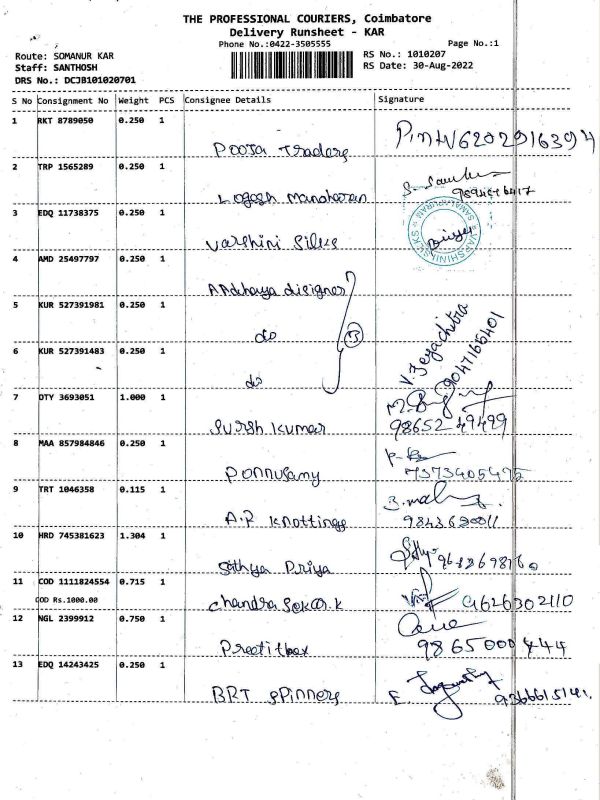 THE PROFESSIONAL COURIERS, Coimbatore
Delivery Runsheet - KAR
Phone No.:0422-3505555 Page No.:1
Route: SOMANUR KAR RS No.: 1010207
Staff: SANTHOSH RS Date: 30-Aug-2022
DRS No.: DCJB101020701
S No Consignment No Weight PCS Consignee Details Signature
1 RKT 8789050 0.250 1
Pooja Traders
2 TRP 1565289 0.250 1
Logesh Manoharan
3 EDQ 11738375 0.250 1
Varshini Silks
4 AMD 25497797 0.250 1
disigner
5 KUR 527391981 0.250 1
do
6 KUR 527391483 0.250 1
do
V. Jeyachitra
9047166401
7 DTY 3693051 1.000 1
Suresh Kumar 98652 49499
8 MAA 857984846 0.250 1
Ponnusamy 7373405495
9 TRT 1046358 0.115 1
A.P Knottingg
10 HRD 745381623 1.304 1
Sathya Priya
11 COD 1111824554 0.715 1
COD Rs.1000.00
Chandra Sekar.K 9626302110
12 NGL 2399912 0.750 1
13 EDQ 14243425 0.250 1
BRT Spinners